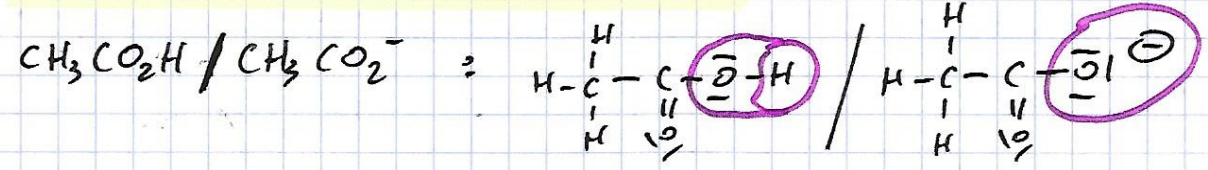 CH₃CO₂H / CH₃CO₂⁻ :
H H
| |
H-C-C-O̲̅-H / H-C-C-O̲̅|⊖
| || | ||
H \O/ H \O/